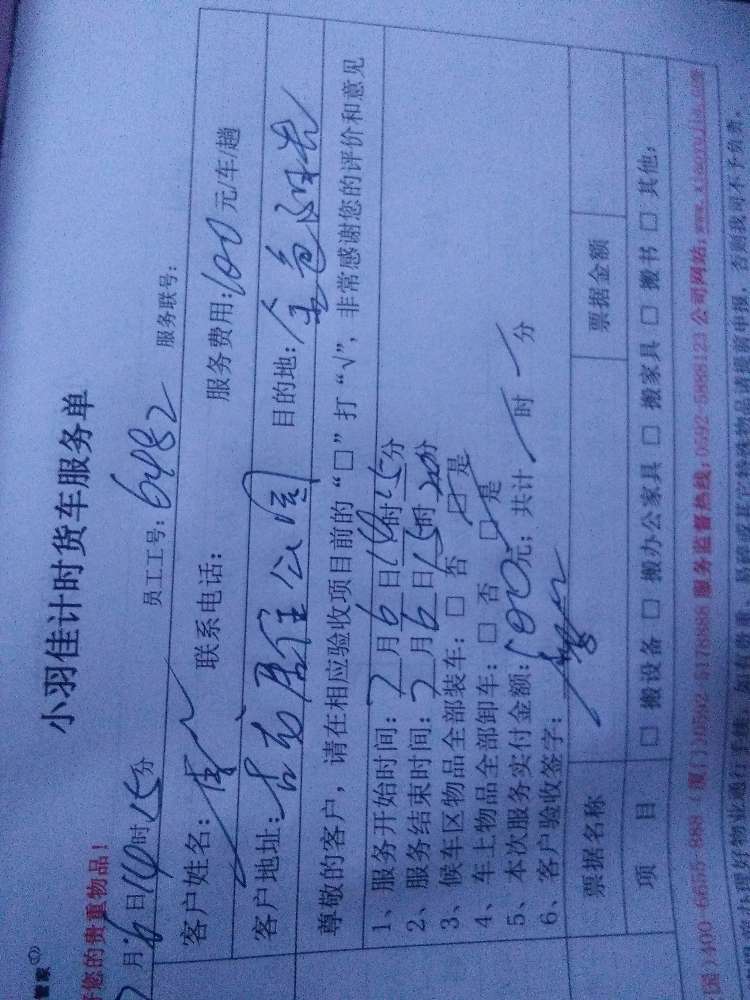 管家
好您的贵重物品！
小羽佳计时货车服务单
月6日14时15分 员工工号：6482 服务联号：
客户姓名： 联系电话： 服务费用：100元/车/趟
客户地址： 公园 目的地：金色阳光
尊敬的客户，请在相应验收项目前的“□”打“√”，非常感谢您的评价和意见
1、服务开始时间：7月6日14时15分
2、服务结束时间：7月6日15时20分
3、候车区物品全部装车：□ 否 ☑ 是
4、车上物品全部卸车：□ 否 ☑ 是
5、本次服务实付金额：100元；共计 时 分
6、客户验收签字：
票据名称 票据金额
项 目 □ 搬设备 □ 搬办公家具 □ 搬家具 □ 搬书 □ 其他：
国)400-6655-888 (厦门)0592-5178888 服务监督热线:0592-5888123 公司网站:www.xiaoyujia.com
否则我司不予负责。